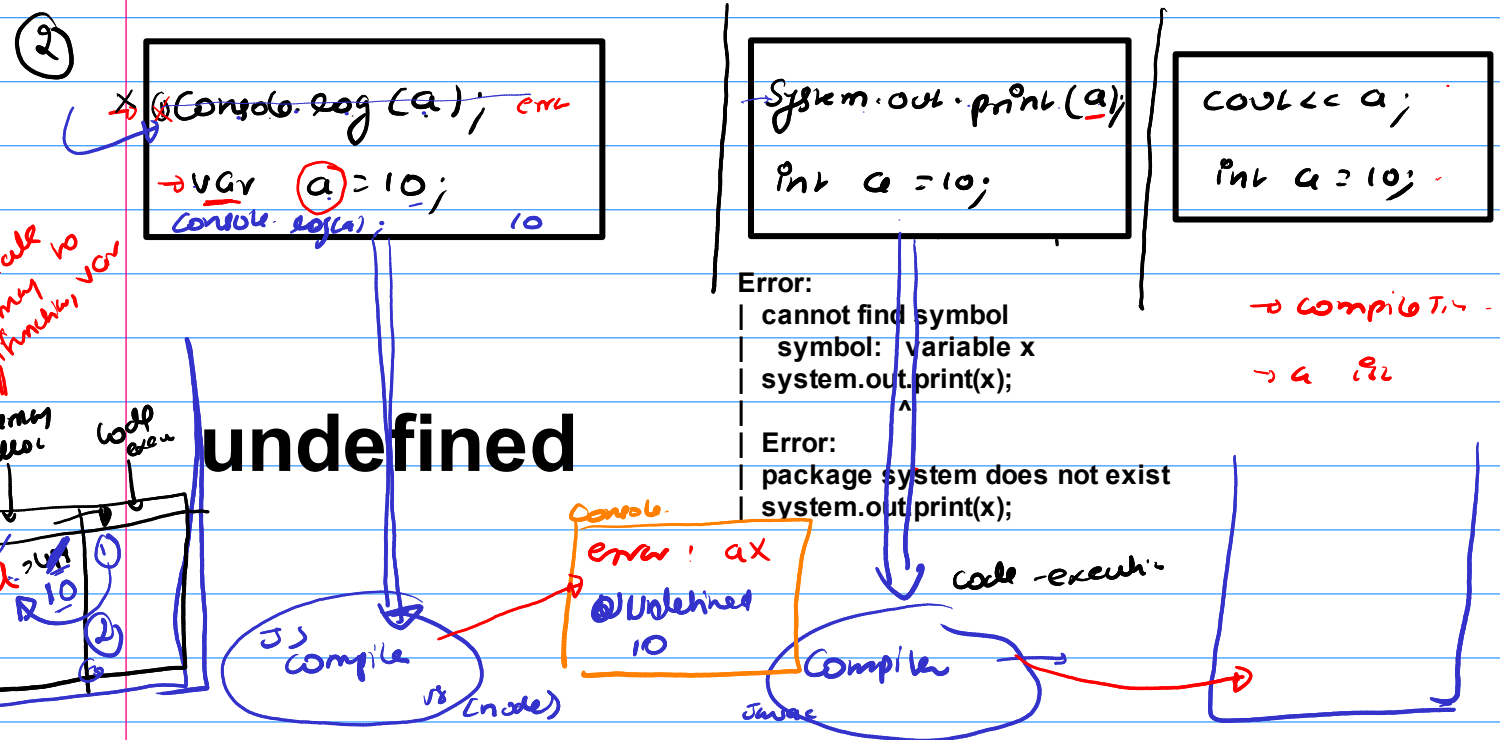 2
Console.log(a); error
var a = 10;
console.log(a); 10
System.out.print(a);
int a = 10;
cout << a;
int a = 10;
var
Error:
| cannot find symbol
| symbol: variable x
| system.out.print(x);
| ^
| Error:
| package system does not exist
| system.out.print(x);
→ a
code
undefined
10
1
2
Console
error: a X
Undefined
10
JS
compile
v8 (node)
code-execution
Compiler
Javac